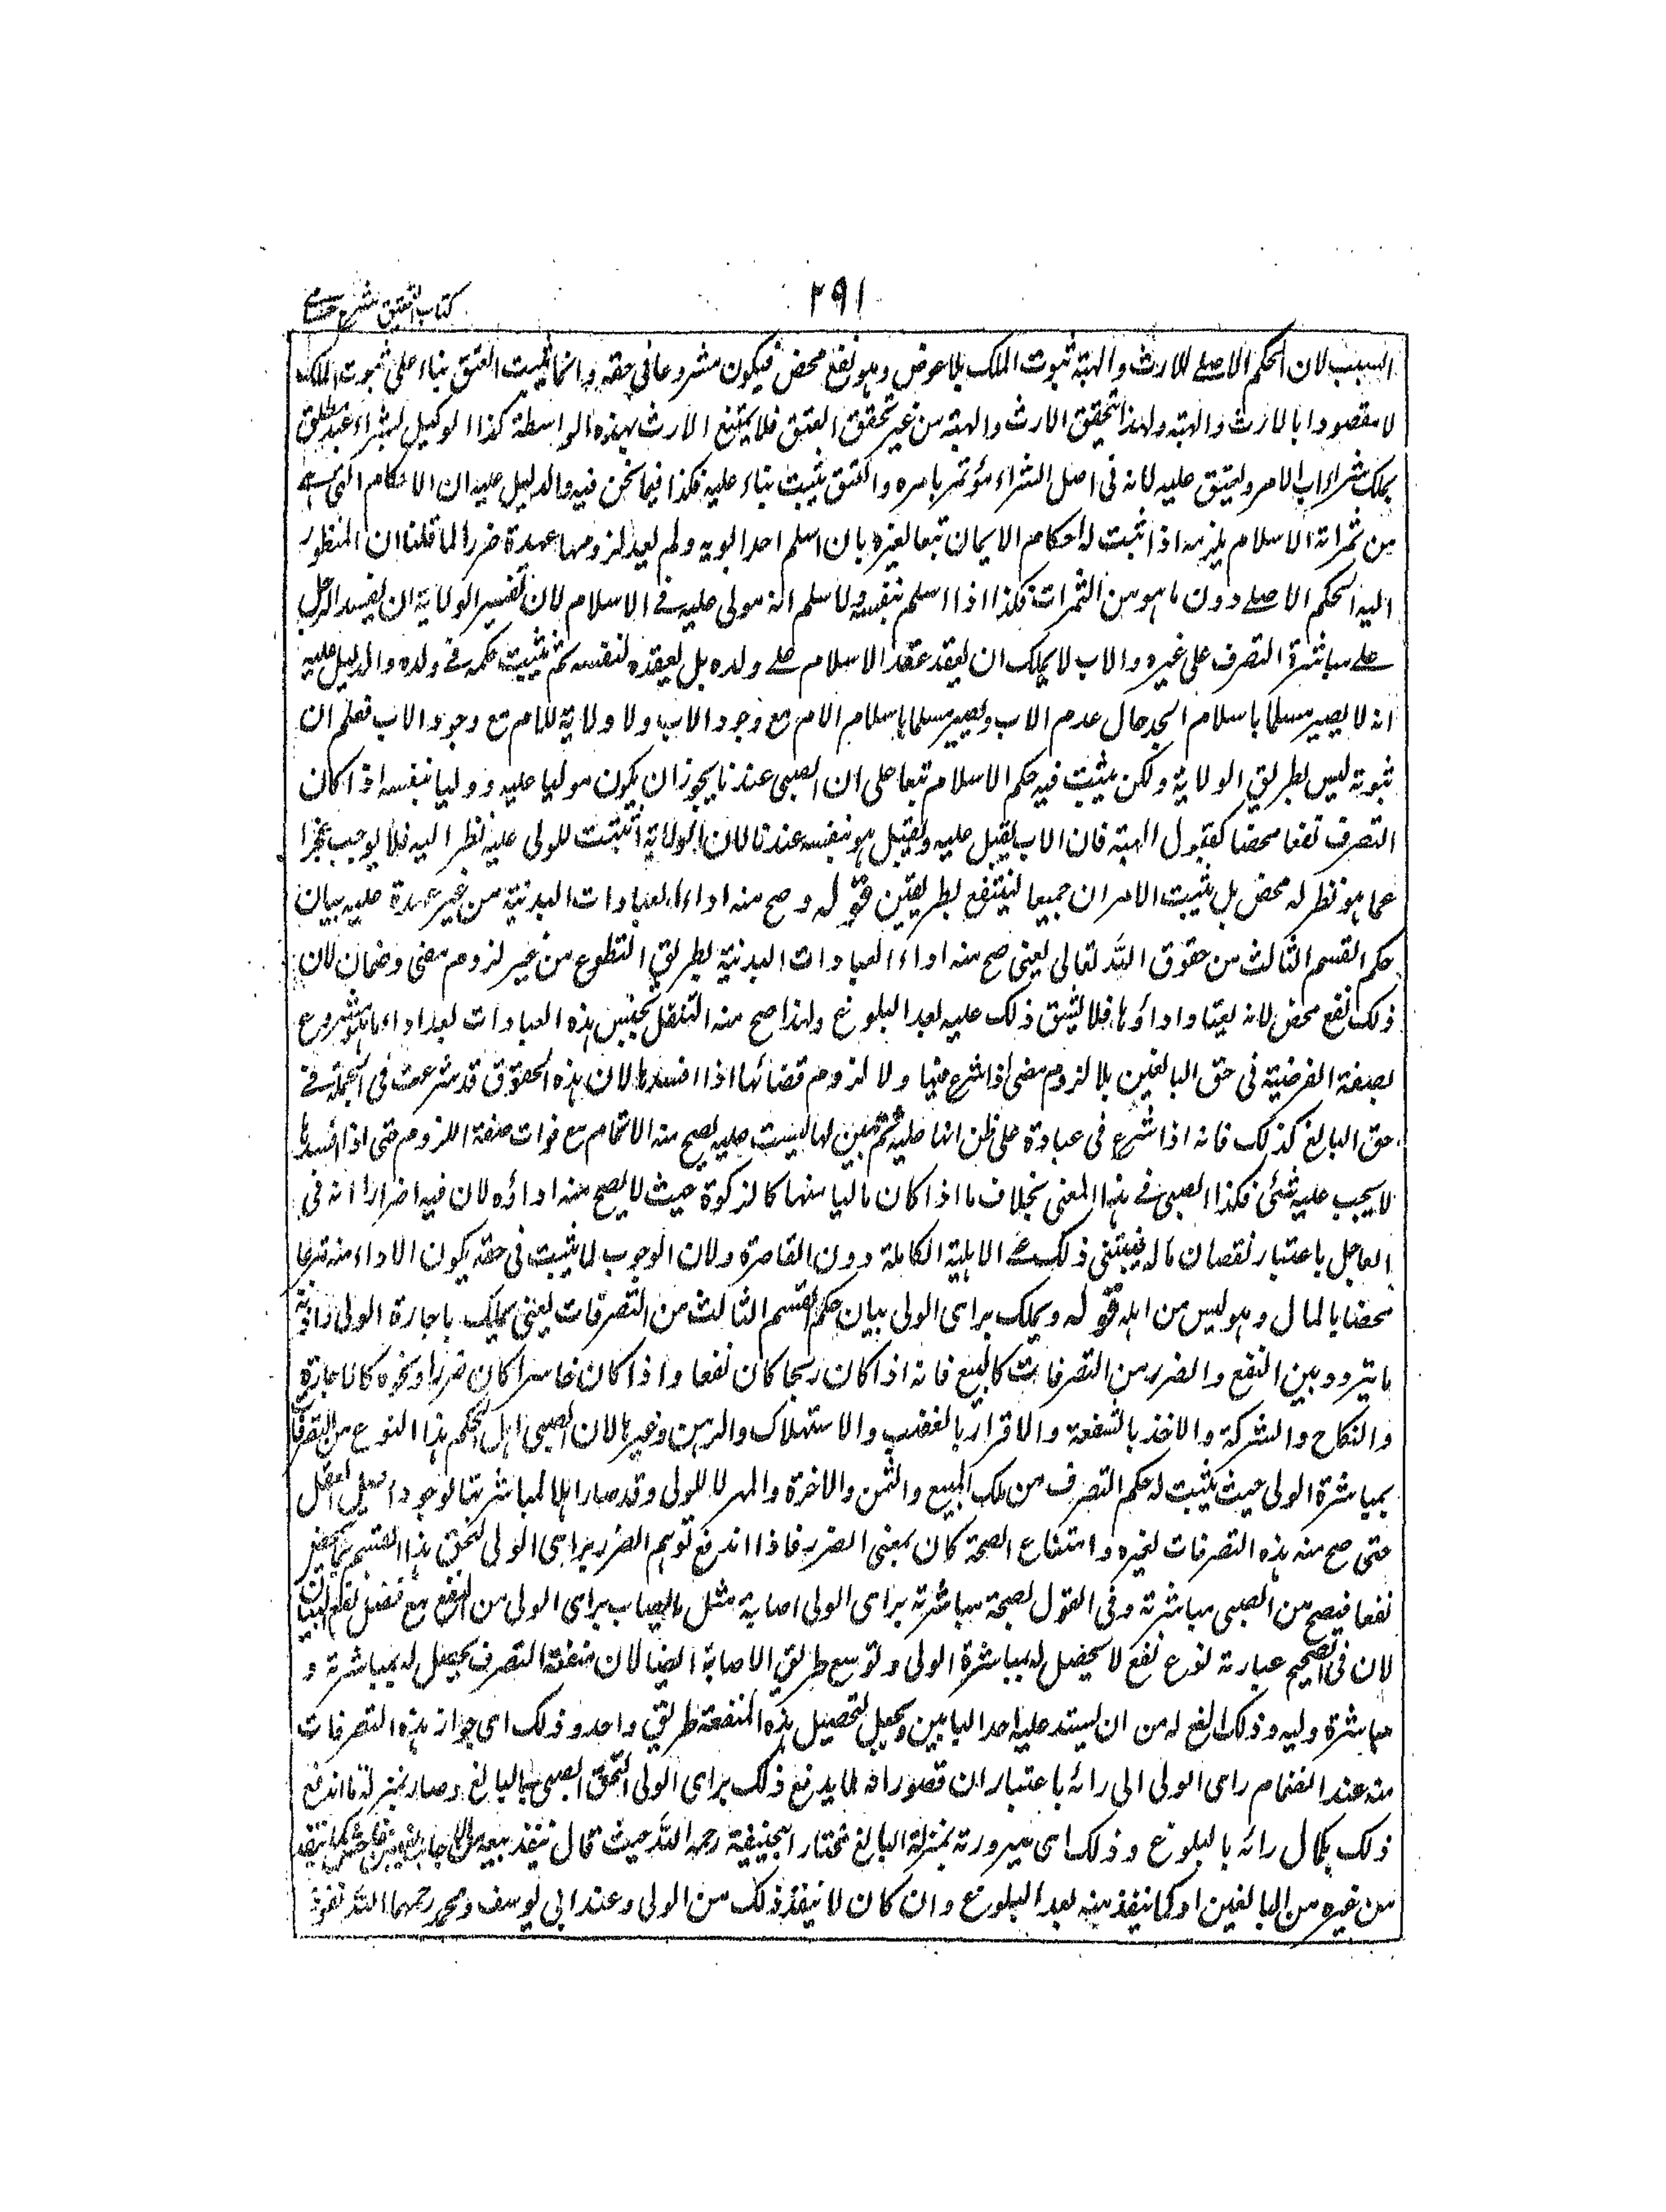 ٢٩١
كتاب التحقيق شرح حسامي
السبب لان الحكم الاصلے للارث والهبة ثبوت الملك بلا عوض وهو نفع محض فيكون مشروعا فى حقه وانما يثبت العتق بناء على ثبوت الملك
لا مقصودا بالارث والهبة ولهذا يتحقق الارث والهبة من غير تحقق العتق فلا يمتنع الارث بهذه الواسطة كذا الوكيل بشراء عبد مطلق
يملك شراء اب الامر ويعتق عليه لانه فى اصل الشراء مؤتمر بامره والعتق يثبت بناء عليه فكذا فيما نحن فيه والدليل عليه ان الاحكام التى هى
من ثمراته الاسلام يلزمه اذا ثبت له احكام الايمان تبعا لغيره بان اسلم احد ابويه ولم يعد لزومها عهدة ضررا لما قلنا ان المنظور
اليه الحكم الاصلے دون ما هو من الثمرات فكذا اذا اسلم بنفسه ولا سلم انه مولى عليه فے الاسلام لان تفسير الولاية ان يقسر الرجل
علے مباشرة التصرف على غيره والاب لا يملك ان يعقد عقد الاسلام علے ولده بل يعقده لنفسه ثم يثبت حكمه فے ولده والدليل عليه
انه لا يصير مسلما باسلام الجد حال عدم الاب ويصير مسلما باسلام الام مع وجود الاب ولا ولاية للام مع وجود الاب فعلم ان
ثبوته ليس بطريق الولاية ولكن يثبت فيه حكم الاسلام تبعا على ان الصبى عندنا يجوز ان يكون موليا عليه ووليا بنفسه اذا كان
التصرف نفعا محضا كقبول الهبة فان الاب يقبل عليه ويقبل هو بنفسه عندنا لان الولاية اثبتت للولى عليه نظرا اليه فلا يوجب حجرا
عما هو نظر له محض بل يثبت الامران جميعا لينتفع بطريقين قوله وصح منه اداء العبادات البدنية من غير عهدة عليه بيان
حكم القسم الثالث من حقوق الله تعالى يعنى صح منه اداء العبادات البدنية بطريق التطوع من غير لزوم مضى وضمان لان
ذلك نفع محض لانه يعتاد اداؤها فلا يشق ذلك عليه بعد البلوغ ولهذا صح منه التنفل بجنس هذه العبادات بعد اداء ما هو مشروع
بصفة الفرضية فى حق البالغين بلا لزوم مضى اذا شرع فيها ولا لزوم قضائها اذا افسدها لان هذه الحقوق قد شرعت فى الجملة فے
حق البالغ كذلك فانه اذا شرع فى عبادة على ظن انها عليه ثم تبين انها ليست عليه يصح منه الاتمام مع فوات صفة اللزوم حتى اذا افسدها
لا يجب عليه شئى فكذا الصبى فے هذا المعنى بخلاف ما اذا كان ماليا منها كالزكوة حيث لا يصح منه اداؤه لان فيه اضرارا انه فى
العاجل باعتبار نقصان ماله فيبتنى ذلك علے الاهلية الكاملة دون القاصرة ولان الوجوب لما يثبت فى حقه يكون الاداء منه تبرعا
محضا بالمال وهو ليس من اهله قوله ويملك براى الولى بيان حكم القسم الثالث من التصرفات يعنى يملك باجارة الولى واذنه
ما يتردد بين النفع والضرر من التصرفات كالبيع فانه اذا كان ربحا كان نفعا واذا كان خاسرا كان ضررا ونحوه كالاجارة
والنكاح والشركة والاخذ بالشفعة والاقرار بالغصب والاستهلاك والرهن وغيرها لان الصبى اهل الحكم هذا النوع من التصرفات
بمباشرة الولى حيث يثبت له حكم التصرف من ملك المبيع والثمن والاخرة والمهر لا للولى وقد صار اهلا لمباشرتها لوجود اصل العقل
حتى صح منه هذه التصرفات لغيره وامتناع الصحة كان بمعنى الضرر فاذا اندفع توهم الضرر براى الولى التحق هذا القسم بما يتمحض
نفعا فيصح من الصبى مباشرته وفى القول بصحة مباشرته براى الولى اصابة مثل ما يصاب براى الولى من النفع مع فضل نفع البيان
لان فى تصحيح عبارته نوع نفع لا يحصل له بمباشرة الولى وتوسع طريق الاصابة ايضا لان منفعة التصرف يحصل له بمباشرته و
مباشرة وليه وذلك انفع له من ان يستد عليه احد البابين ويجعل لتحصيل هذه المنفعة طريق واحد وذلك اى جواز هذه التصرفات
منه عند انضمام راى الولى الى رائه باعتبار ان قصور رايه لما يدفع ذلك براى الولى التحق الصبى بالبالغ وصار بمنزلة ما اندفع
ذلك بكمال رائه بالبلوغ وذلك اى صيرورته بمنزلة البالغ مختار ابيحنيفة رحمه الله حيث قال ينفذ بيعه من الاجانب بغبن فاحش كما ينفذ
من غيره من البالغين او كما ينفذ منه بعد البلوغ وان كان لا ينفذ ذلك من الولى وعند ابى يوسف ومحمد رحمهما الله نفوذ